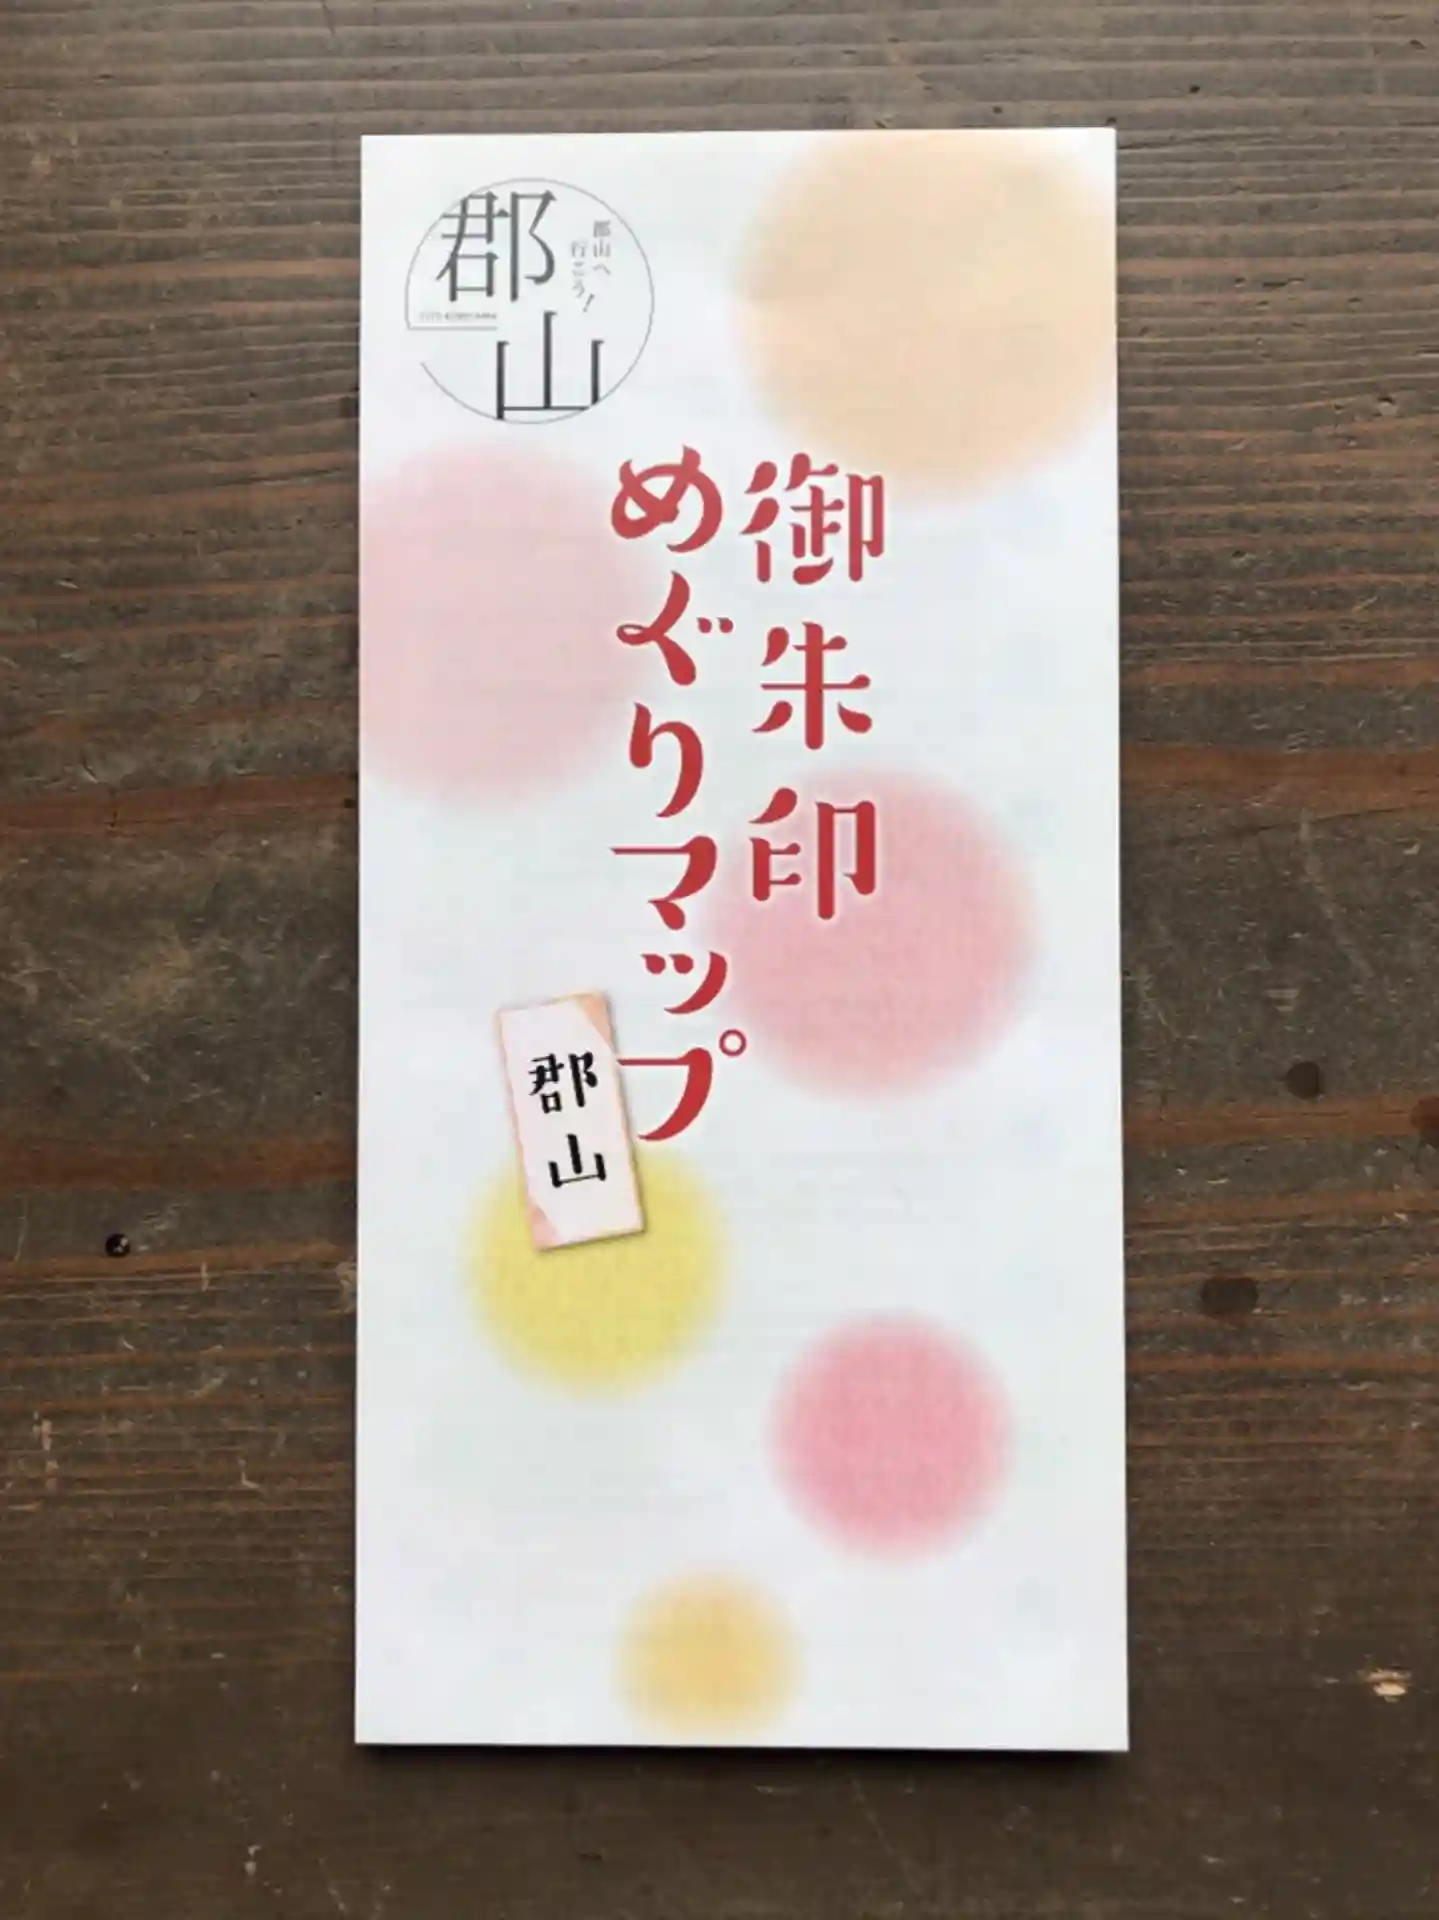 郡山
郡山へ
行こう！
御朱印
めぐりマップ
郡山